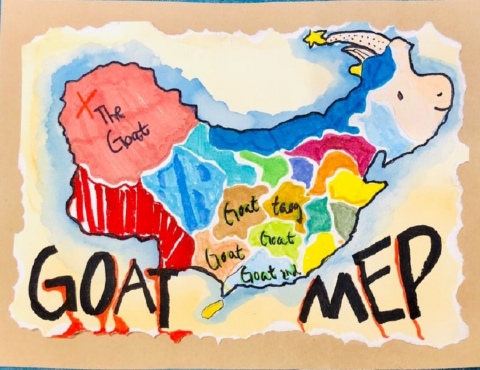 The
Goat
Goat tang
Goat
Goat
Goat
GOAT MEP